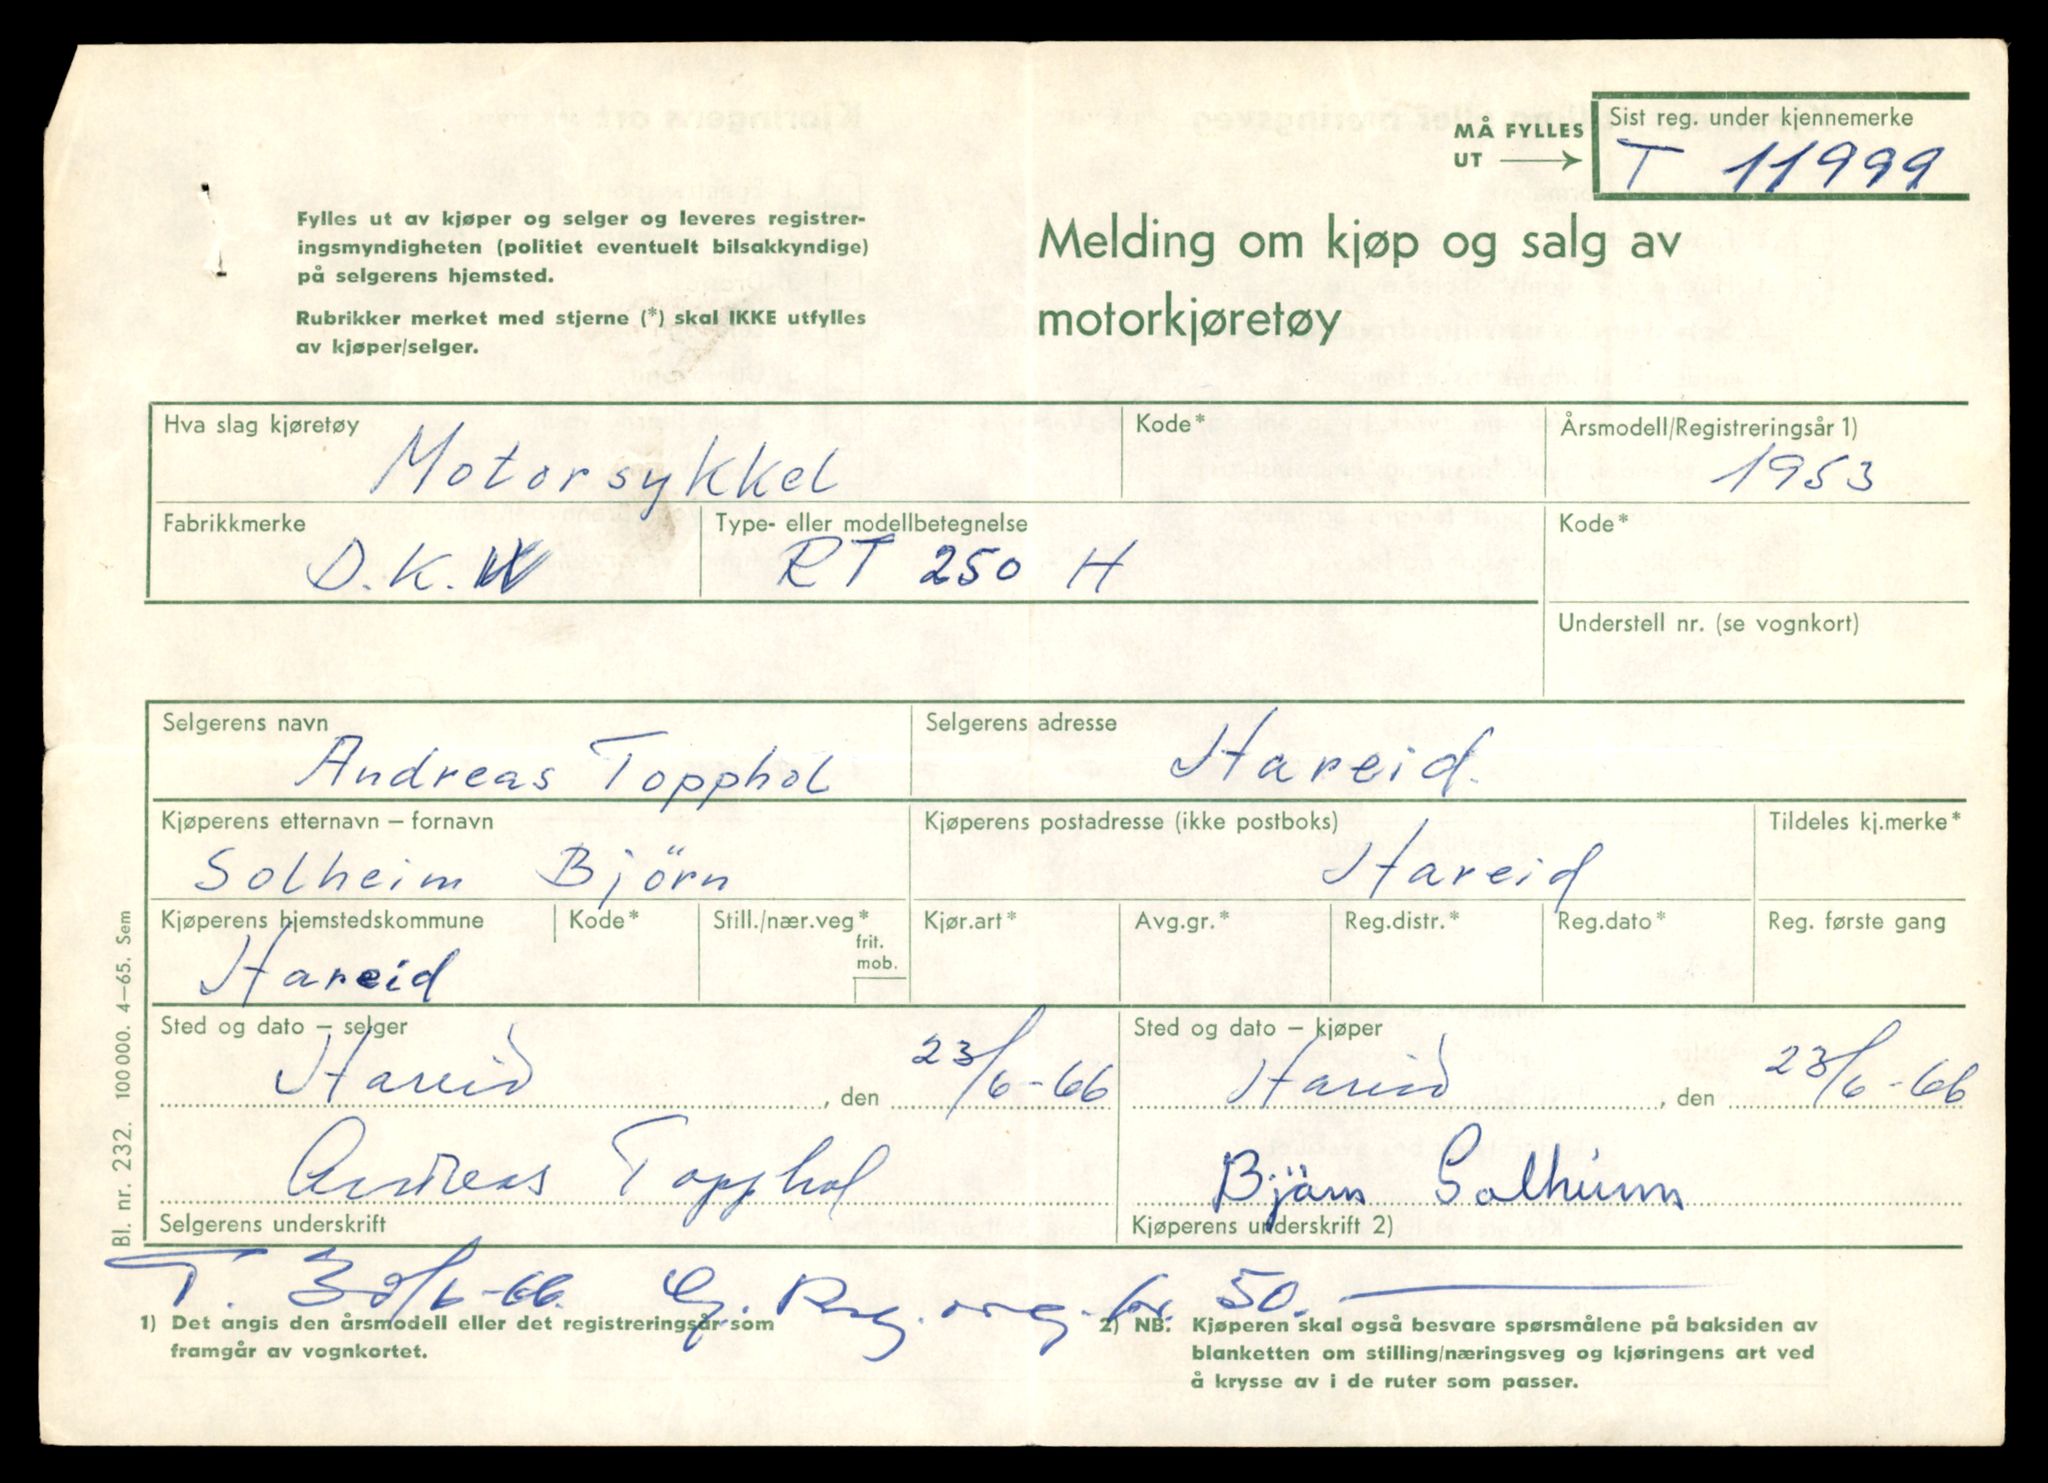 MÅ FYLLES
UT
Sist reg. under kjennemerke
T 11999
Fylles ut av kjøper og selger og leveres registrer-
ingsmyndigheten (politiet eventuelt bilsakkyndige)
på selgerens hjemsted.
Rubrikker merket med stjerne (*) skal IKKE utfylles
av kjøper/selger.
Melding om kjøp og salg av
motorkjøretøy
Hva slag kjøretøy
Motorsykkel
Kode*
Årsmodell/Registreringsår 1)
1953
Fabrikkmerke
D.K.W
Type- eller modellbetegnelse
RT 250 H
Kode*
Understell nr. (se vognkort)
Selgerens navn
Andreas Topphol
Selgerens adresse
Hareid.
Kjøperens etternavn – fornavn
Solheim Björn
Kjøperens postadresse (ikke postboks)
Hareid
Tildeles kj.merke*
Kjøperens hjemstedskommune
Hareid
Kode*
Still./nær.veg*
frit.
mob.
Kjør.art*
Avg.gr.*
Reg.distr.*
Reg.dato*
Reg. første gang
Sted og dato – selger
Hareid, den 23/6-66
Sted og dato – kjøper
Hareid, den 23/6-66
Andreas Topphol
Selgerens underskrift
Björn Solheim
Kjøperens underskrift 2)
T. 30/6-66. 50.
1) Det angis den årsmodell eller det registreringsår som
framgår av vognkortet.
2) NB. Kjøperen skal også besvare spørsmålene på baksiden av
blanketten om stilling/næringsveg og kjøringens art ved
å krysse av i de ruter som passer.
Bl. nr. 232. 100 000. 4–65. Sem